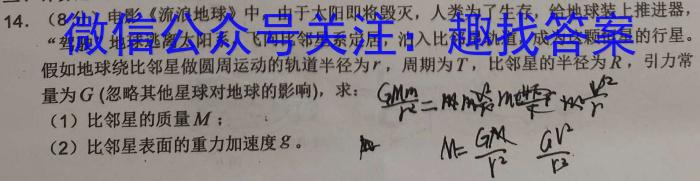 14.（8分）电影《流浪地球》中，由于太阳即将毁灭，人类为了生存，给地球装上推进器，
微信公众号关注：趣找答案
“驾驶”地球逃离太阳系，飞向比邻星系定居，泊入比邻星轨道，成为这颗恒星的行星。
假如地球绕比邻星做圆周运动的轨道半径为r，周期为T，比邻星的半径为R，引力常
量为G (忽略其他星球对地球的影响)，求：
（1）比邻星的质量M；
（2）比邻星表面的重力加速度g。
GMm/r² =